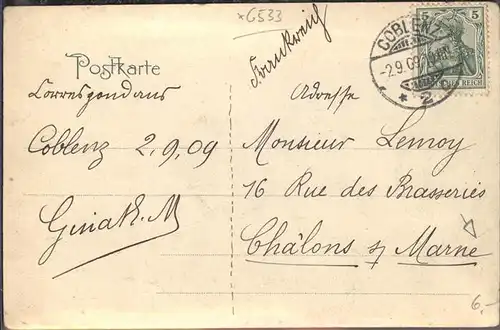 *G533
Frankreich
COBLENZ
-2.9.09
* 2
5 5
DEUTSCHES REICH
Postkarte
Correspondans
Coblenz 2,9,09
Adresse
Monsieur Lemoy
16 Rue des Brasseries
Châlons s/ Marne
6,-